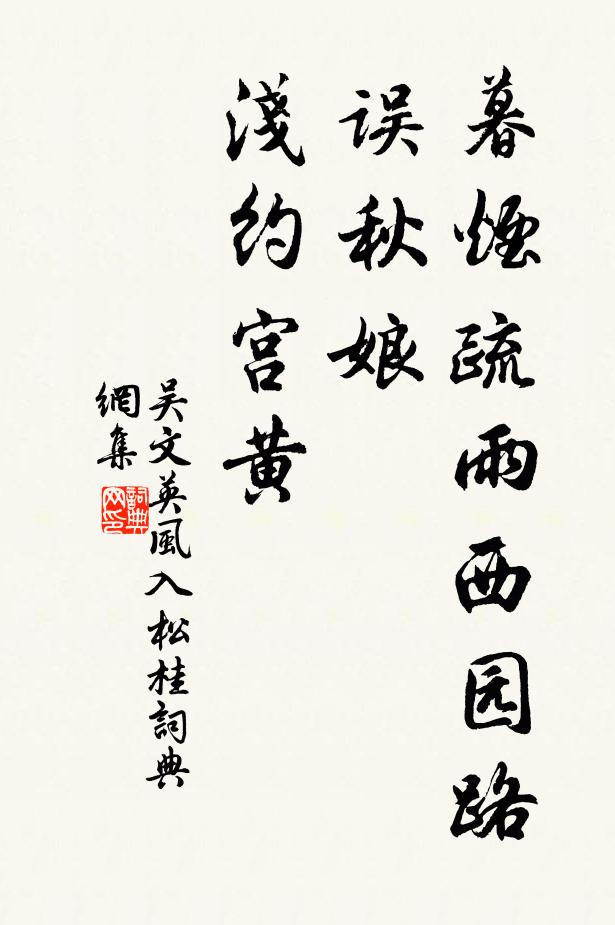 暮煙疏雨西园路
误秋娘
淺约宫黄
吴文英風入松桂詞典
網集
詞典
网印